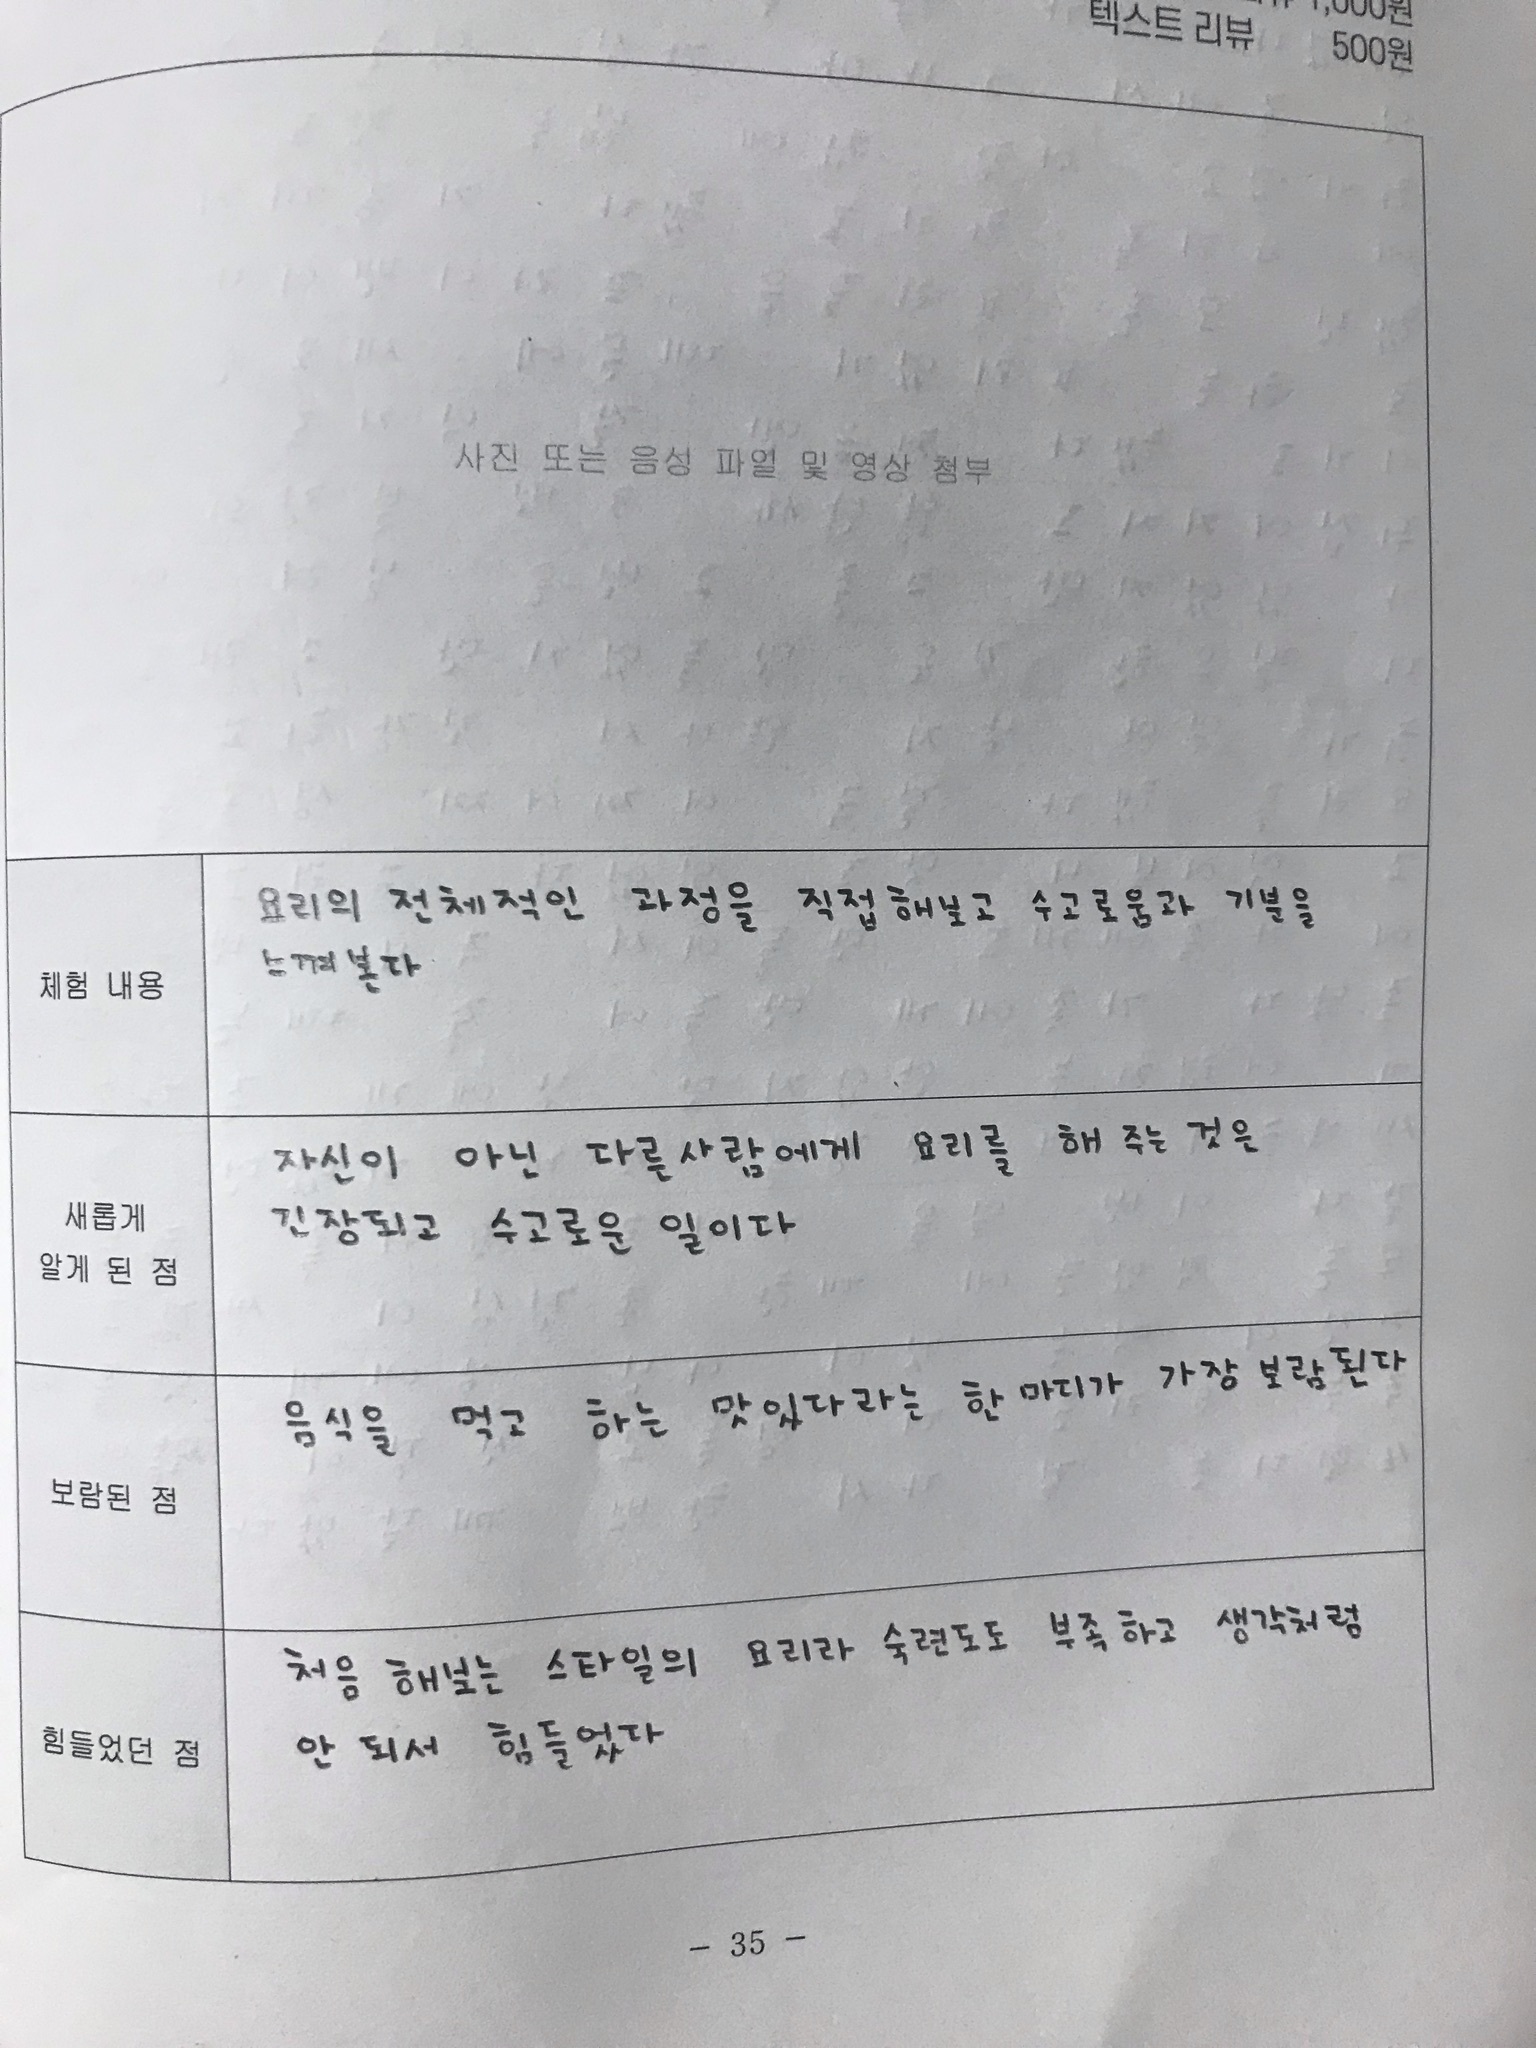 1,000원
텍스트 리뷰 500원
사진 또는 음성 파일 및 영상 첨부
체험 내용
요리의 전체적인 과정을 직접해보고 수고로움과 기분을
느껴본다
새롭게
알게 된 점
자신이 아닌 다른사람에게 요리를 해 주는 것은
긴장되고 수고로운 일이다
보람된 점
음식을 먹고 하는 맛있다라는 한마디가 가장 보람된다
힘들었던 점
처음 해보는 스타일의 요리라 숙련도도 부족하고 생각처럼
안 되서 힘들었다
- 35 -